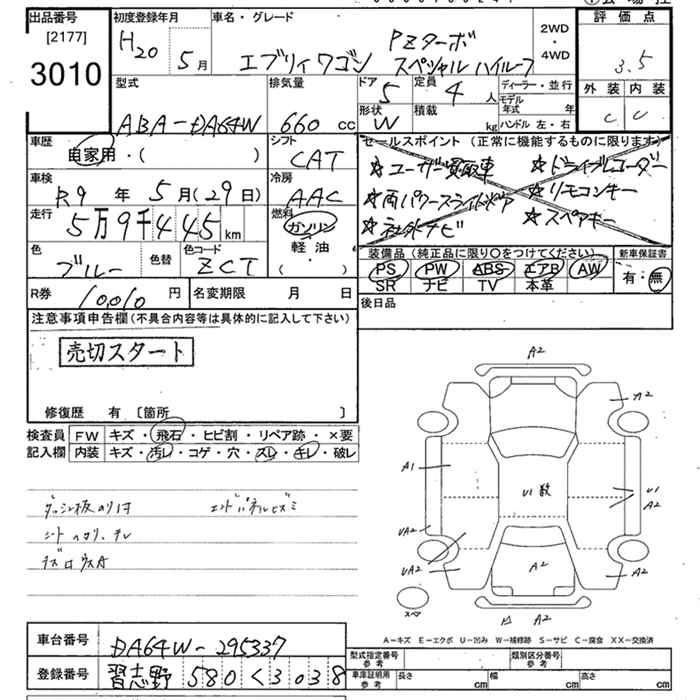 出品番号
[2177]
3010
初度登録年月
H20 5月
車名・グレード
PZターボ
エブリィワゴン スペシャルハイルーフ
2WD
・
4WD
評価点
3.5
外装 内装
C C
型式
ABA-DA64W
排気量
660 cc
ドア 5
定員 4 人
形状 W
積載 kg
ディーラー・並行
モデル年式 年
ハンドル 左・右
車歴
自家用・( )
シフト
CAT
セールスポイント (正常に機能するものに限ります)
☆ユーザー買取車 ☆ドライブレコーダー
☆両パワースライドドア ☆リモコンキー
☆社外ナビ ☆スペアキー
車検
R9 年 5月(29日)
冷房
AAC
走行
5万9千445km
燃料
ガソリン
軽油
・( )
色
ブルー
色替
色コード
ZCT
装備品 (純正品に限り○をつけてください)
PS PW ABS エアB AW
SR ナビ TV 本革
新車保証書
有・無
R券 10010 円
名変期限 月 日
後日品
注意事項申告欄(不具合内容等は具体的に記入して下さい)
売切スタート
修復歴 有 〔箇所 〕
検査員記入欄
FW キズ・飛石・ヒビ割・リペア跡・×要
内装 キズ・汚レ・コゲ・穴・スレ・キレ・破レ
A2
A2
A1
U1数
U1
A2
UA2
UA2
A2
A2
A2
スペア
A-キズ E-エクボ U-凹み W-補修跡 S-サビ C-腐食 XX-交換済
車台番号 DA64W-295337
登録番号 習志野 580 く 3038
型式指定番号 参考
類別区分番号 参考
車庫証明用 参考
長さ cm
幅 cm
高さ cm